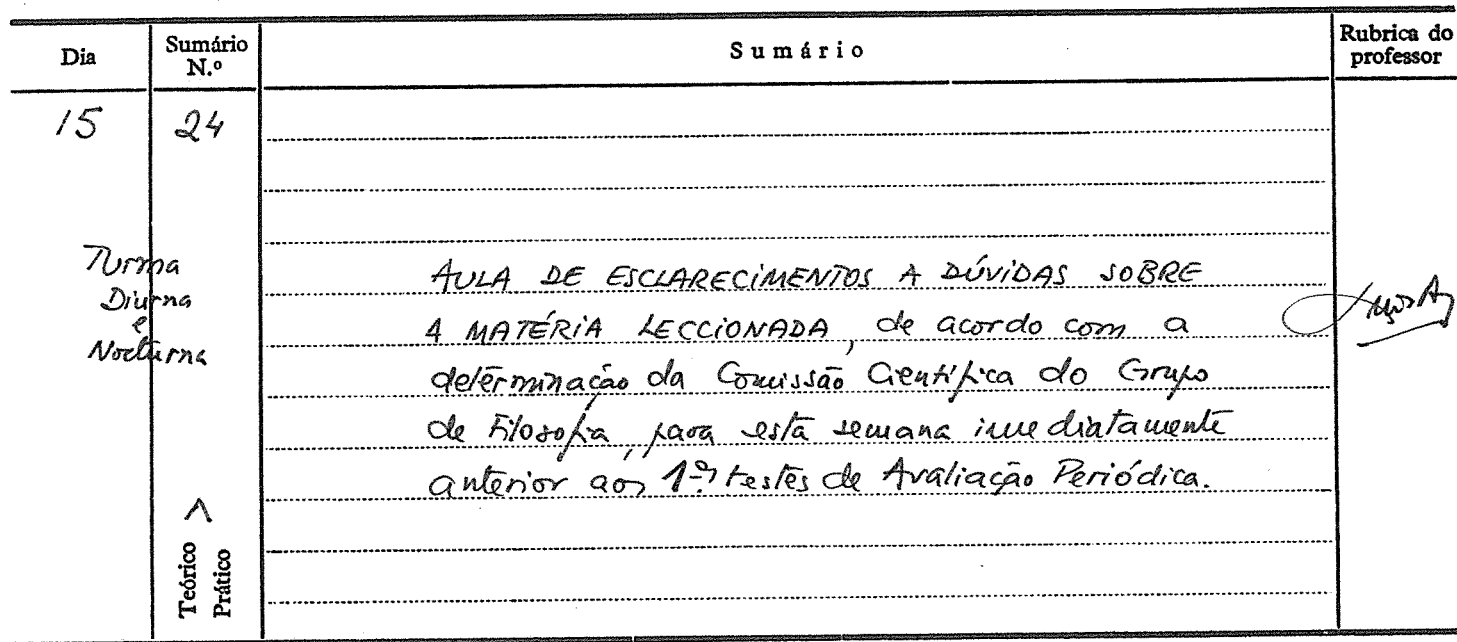 Dia Sumário N.º Sumário Rubrica do professor
15 24
Turma
Diurna
e
Nocturna
AULA DE ESCLARECIMENTOS A DÚVIDAS SOBRE
A MATÉRIA LECCIONADA, de acordo com a
determinação da Comissão Científica do Grupo
de Filosofia, para esta semana imediatamente
anterior aos 1.ºs testes de Avaliação Periódica.
Teórico
Prático